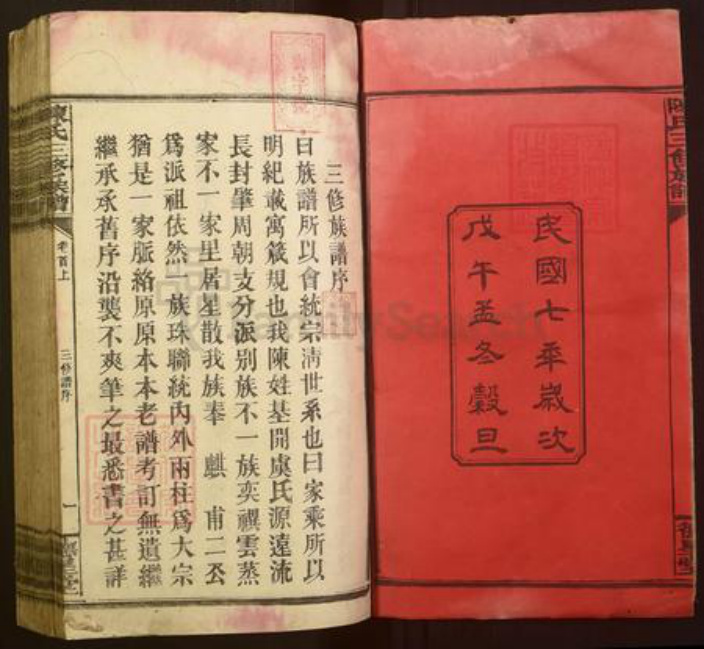 民國七年歲次
戊午孟冬穀旦
陳氏三修族譜
三修族譜序
曰族譜所以會統宗清世系也曰家乘所以
明紀載寓箴規也我陳姓基開虞氏源遠流
長封肇周朝支分派別族不一族奕禩雲蒸
家不一家星居星散我族奉 麒 甫二公
爲派祖依然一族珠聯統內外兩柱爲大宗
猶是一家脈絡原原本本老譜考訂無遺繼
繼承承舊序沿襲不爽筆之最悉書之甚詳
陳氏三修族譜
卷首上
三修譜序
一
FamilySearch